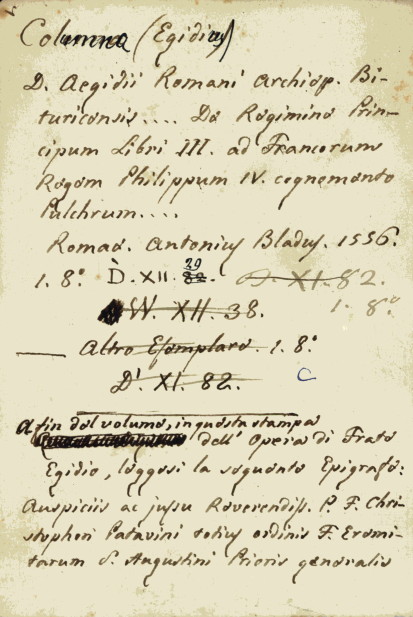 Columna (Egidius)
D. Aegidii Romani Archiep. Bi-
turicensis.... De Regimine Prin-
cipum Libri III. ad Francorum
Regem Philippum IV. cognomento
Pulchrum....
Romae. Antonius Bladus. 1556.
1. 8.° D. XII. 82. 29 D. XI. 82.
W. XII. 38. 1. 8°
Altro Esemplare. 1. 8.°
D'. XI. 82. C
A fin del volume, in questa stampa
dell' Opera di Frate
Egidio, leggesi la seguente Epigrafe:
Auspiciis ac jussu Reverendiss. P. F. Chri-
stophori Patavini totius ordinis F. Eremi-
tarum S. Augustini Prioris generalis